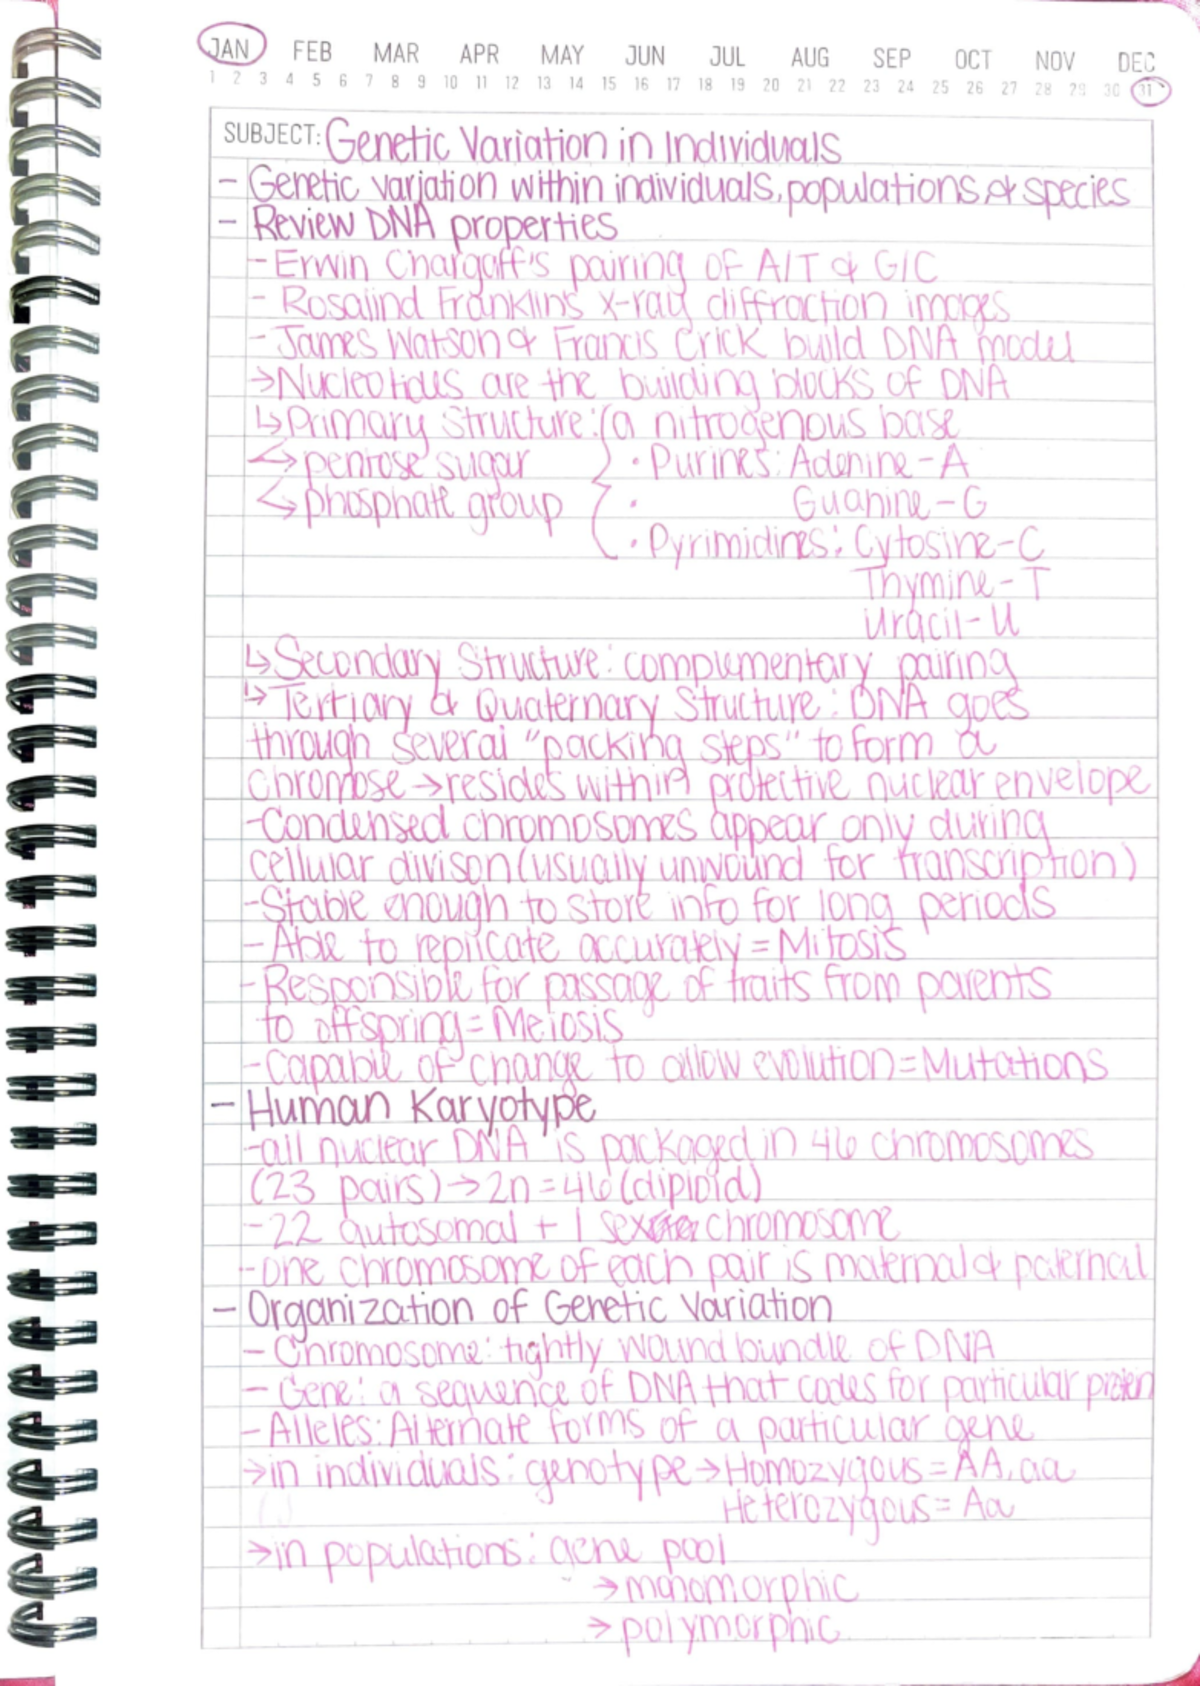 JAN FEB MAR APR MAY JUN JUL AUG SEP OCT NOV DEC
1 2 3 4 5 6 7 8 9 10 11 12 13 14 15 16 17 18 19 20 21 22 23 24 25 26 27 28 29 30 31
SUBJECT: Genetic Variation in Individuals
- Genetic variation within individuals, populations, & species
- Review DNA properties
- Erwin Chargaff's pairing of A/T & G/C
- Rosalind Franklin's x-ray diffraction images
- James Watson & Francis Crick build DNA model
→Nucleotides are the building blocks of DNA
↳Primary Structure: (a nitrogenous base
↳pentose sugar · Purines: Adenine-A
↳phosphate group · Guanine-G
· Pyrimidines: Cytosine-C
Thymine-T
Uracil-U
↳Secondary Structure: complementary pairing
↳Tertiary & Quaternary Structure: DNA goes
through several "packing steps" to form a
chromose→resides within protective nuclear envelope
-Condensed chromosomes appear only during
cellular divison (usually unwound for transcription)
-Stable enough to store info for long periods
-Able to replicate accurately = Mitosis
-Responsible for passage of traits from parents
to offspring = Meiosis
-Capable of change to allow evolution = Mutations
- Human Karyotype
-all nuclear DNA is packaged in 46 chromosomes
(23 pairs)→2n=46 (diploid)
-22 autosomal + 1 sex chromosome
-one chromosome of each pair is maternal & paternal
- Organization of Genetic Variation
- Chromosome: tightly wound bundle of DNA
- Gene: a sequence of DNA that codes for particular protein
- Alleles: Alternate forms of a particular gene
→in individuals: genotype→Homozygous = AA, aa
Heterozygous = Aa
→in populations: gene pool
→monomorphic
→polymorphic